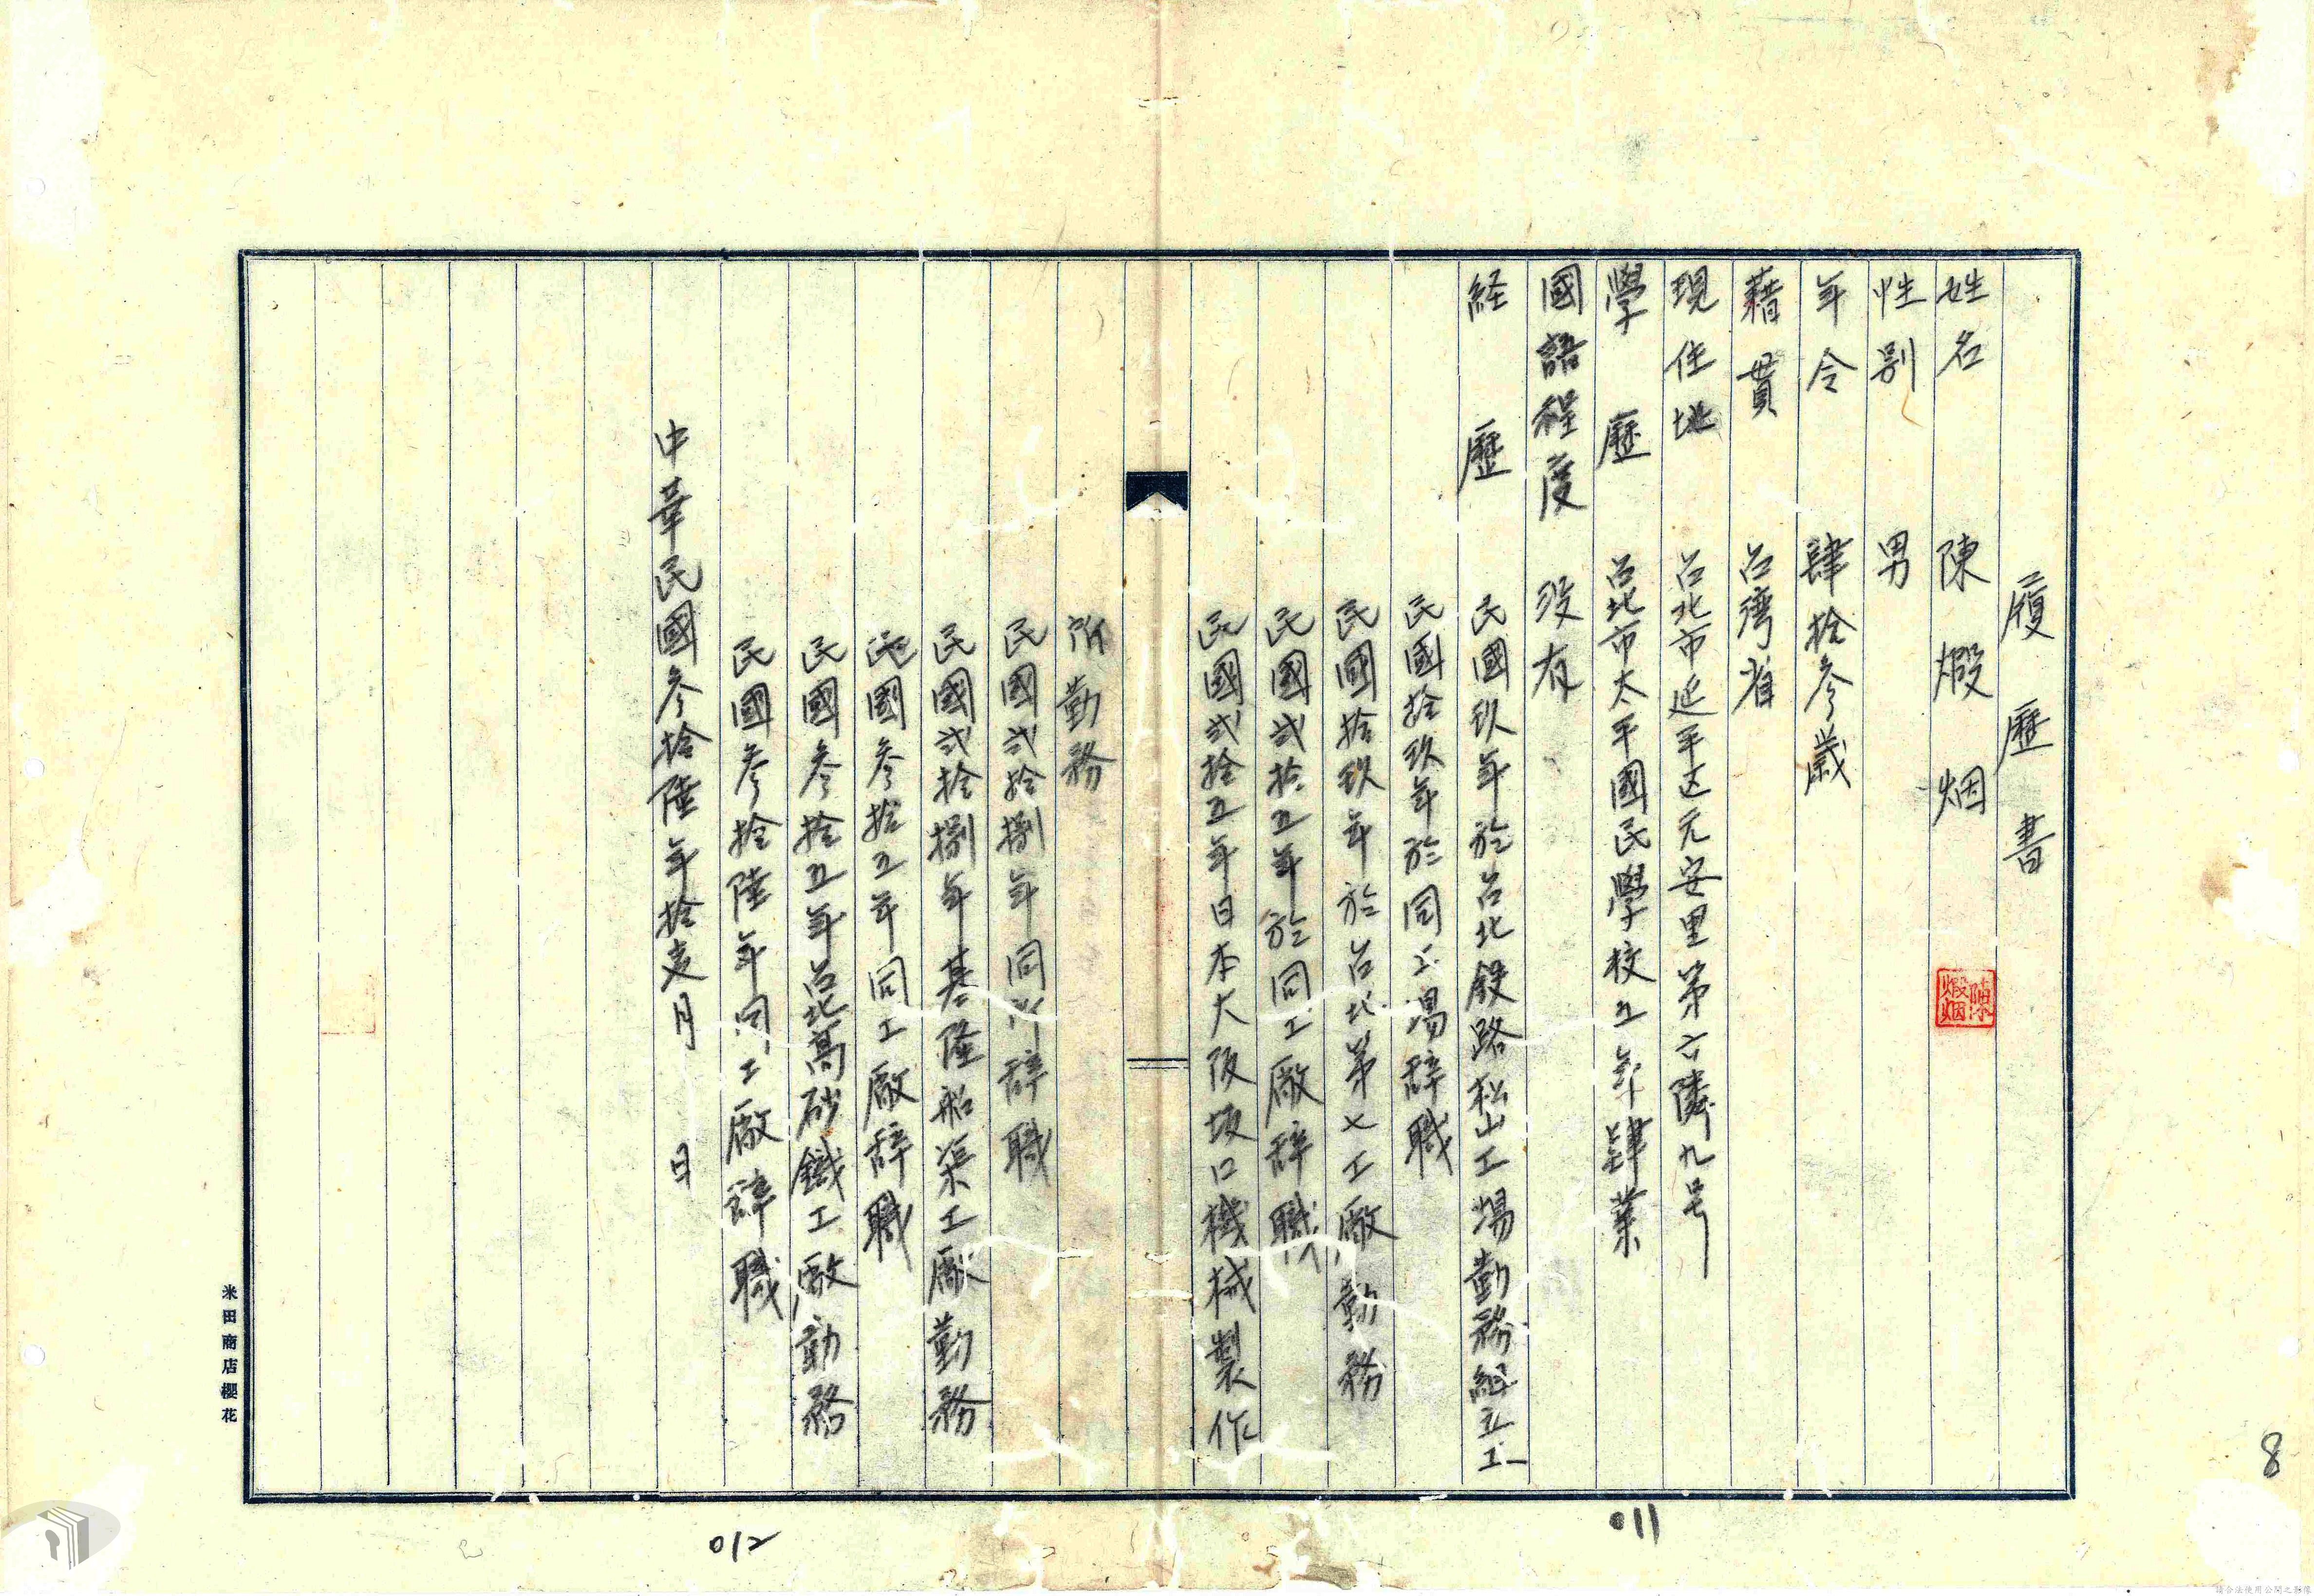 履歷書
姓名 陳煅烟
陳煅烟
性別 男
年令 肆拾參歲
藉貫 台灣省
現住地 台北市延平区元安里第六隣九号
學歷 台北市太平國民學校五年肄業
國語程度 没有
経歷 民國玖年於台北鉄路松山工場勤務組立工
民國拾玖年於同工場辞職
民國拾玖年於台北第七工廠勤務
民國弐拾五年於同工廠辞職
民國弐拾五年日本大阪坂口機械製作
所勤務
民國弐拾捌年同所辞職
民國弐拾捌年基隆船渠工廠勤務
民國參拾五年同工廠辞職
民國參拾五年台北高砂鐵工廠勤務
民國參拾陸年同工廠辞職
中華民國參拾陸年拾壹月 日
米田商店櫻花
011
012
8